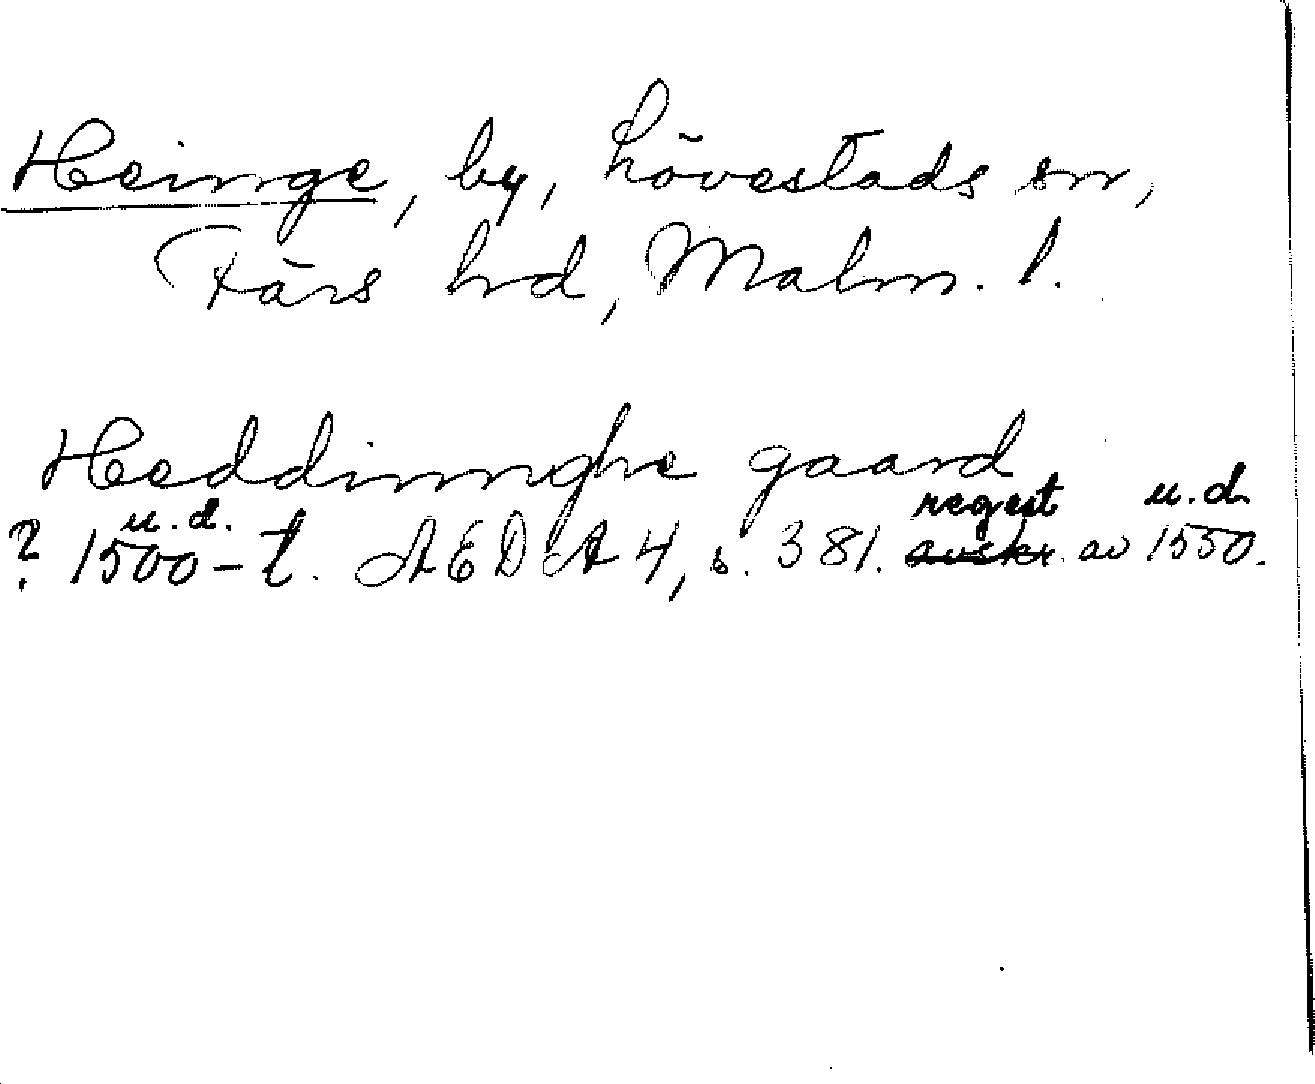 Heinge, by, Lövestads sn,
Färs hd, Malm. l.
Heddinnghe gaard
regest u.d.
u.d.
? 1500-t. AEDA 4, s. 381. avskr. av 1550.